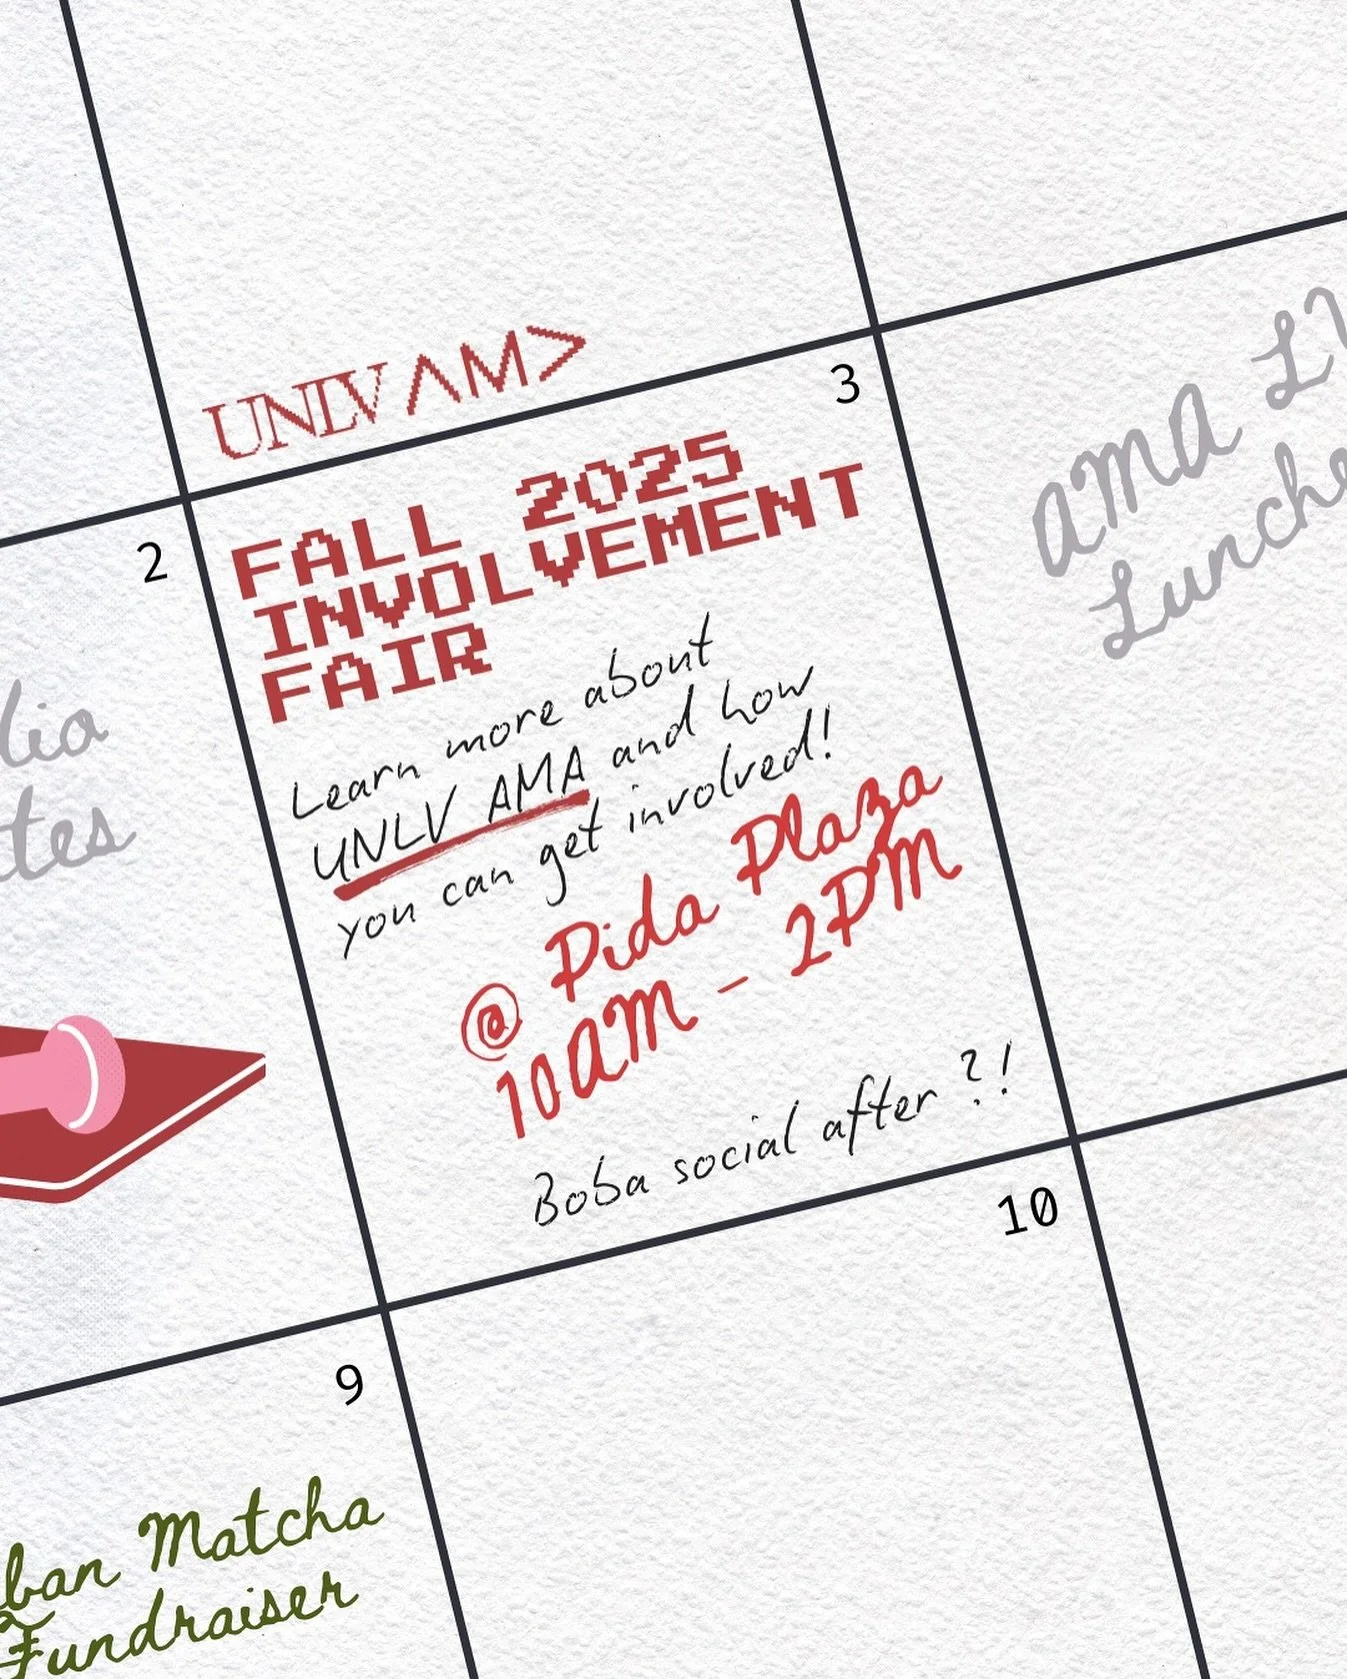 UNLV AM>
3
FALL 2025
INVOLVEMENT
FAIR
Learn more about
UNLV AMA and how
you can get involved!
@ Pida Plaza
10AM - 2PM
Boba social after ?!
2
AMA
Matcha
Fundraiser
9
10